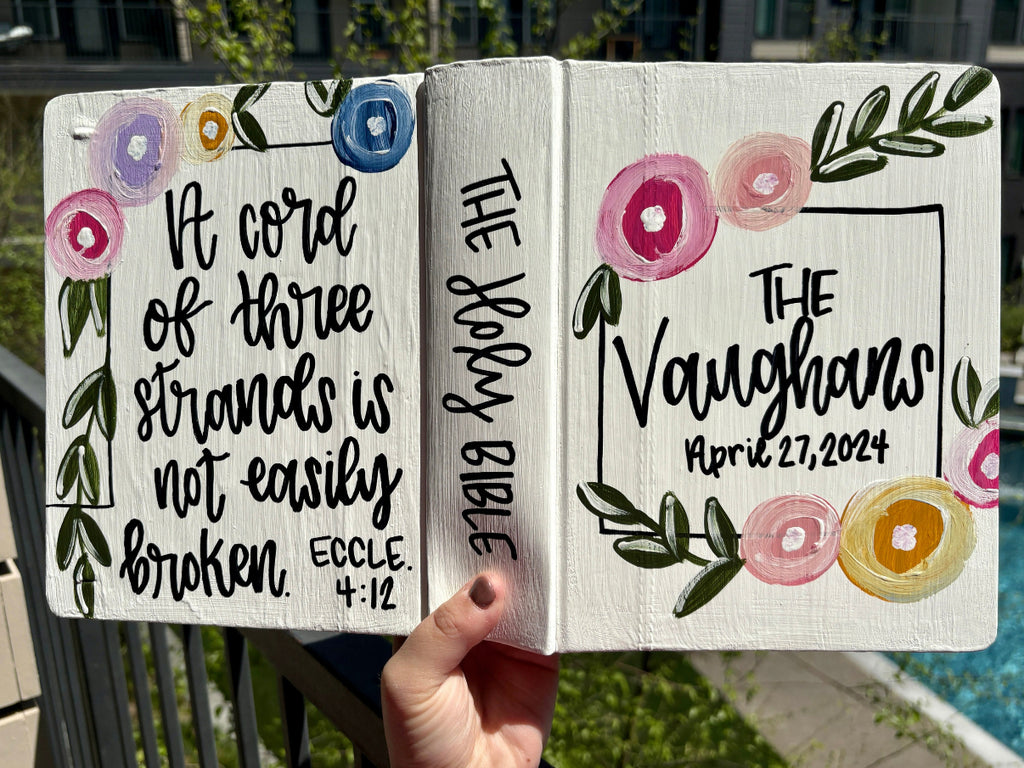 A cord
of three
strands is
not easily
broken.
ECCLE.
4:12
THE Holy BIBLE
THE
Vaughans
April 27, 2024